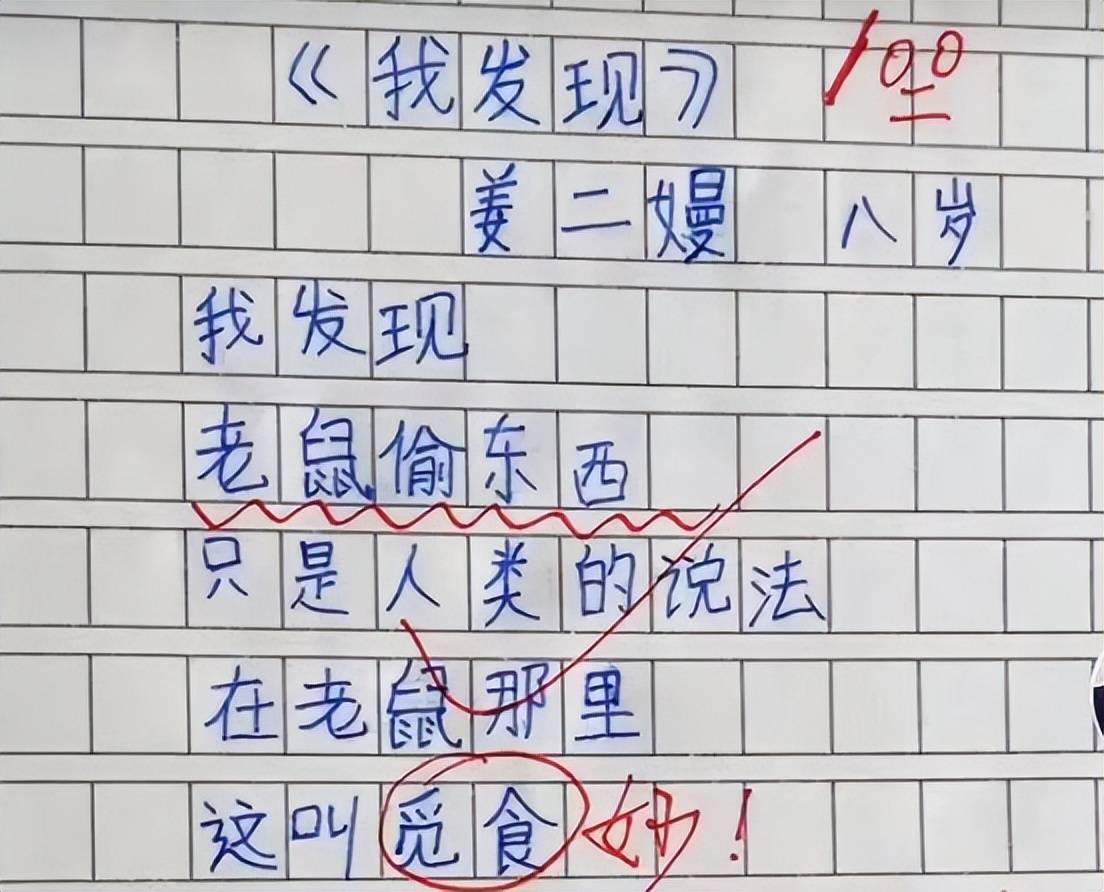 《我发现》 100
姜二嫚 八岁
我发现
老鼠偷东西
只是人类的说法
在老鼠那里
这叫觅食 妙!